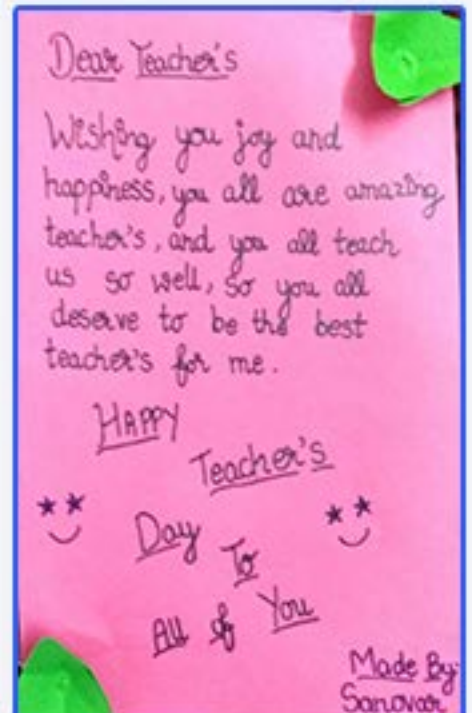 Dear Teacher's
Wishing you joy and
happiness, you all are amazing
teacher's, and you all teach
us so well, so you all
deserve to be the best
teacher's for me.
HAPPY
Teacher's
Day To
All of You
Made By:
Sanovar